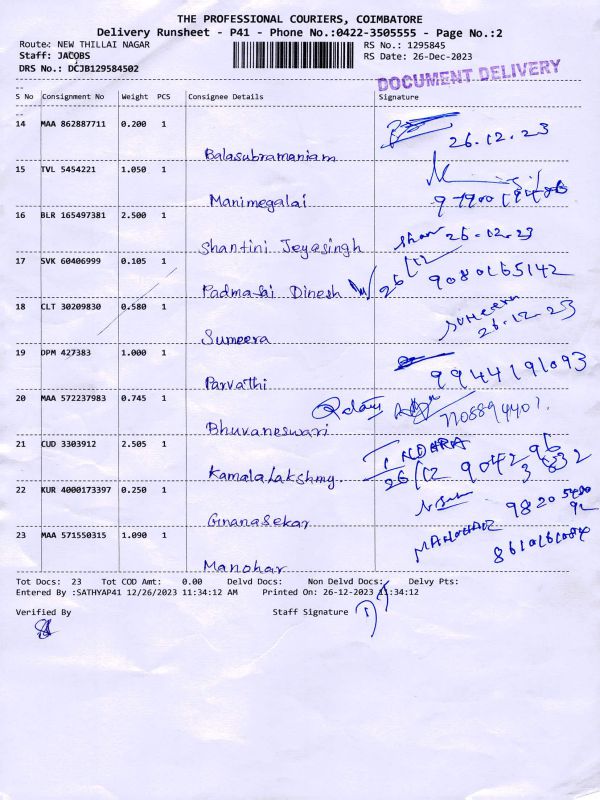 THE PROFESSIONAL COURIERS, COIMBATORE
Delivery Runsheet - P41 - Phone No.:0422-3505555 - Page No.:2
Route: NEW THILLAI NAGAR RS No.: 1295845
Staff: JACOBS RS Date: 26-Dec-2023
DRS No.: DCJB129584502
DOCUMENT DELIVERY
S No Consignment No Weight PCS Consignee Details Signature
14 MAA 862887711 0.200 1
Balasubramaniam 26.12.23
15 TVL 5454221 1.050 1
Manimegalai
16 BLR 165497381 2.500 1
Shantini Jeyasingh 26-12.23
17 SVK 60406999 0.105 1
Padmasai Dinesh 26/12 9080165142
18 CLT 30209830 0.580 1
Sumeera SUMEERA 26.12.23
19 DPM 427383 1.000 1
Parvathi 9944191093
20 MAA 572237983 0.745 1
Bhuvaneswari
21 CUD 3303912 2.505 1
Kamalalakshmy. INDHRA 26/12
22 KUR 4000173397 0.250 1
Gnanasekar
23 MAA 571550315 1.090 1
Manohar MANOHAR
Tot Docs: 23 Tot COD Amt: 0.00 Delvd Docs: Non Delvd Docs: Delvy Pts:
Entered By :SATHYAP41 12/26/2023 11:34:12 AM Printed On: 26-12-2023 11:34:12
Verified By Staff Signature